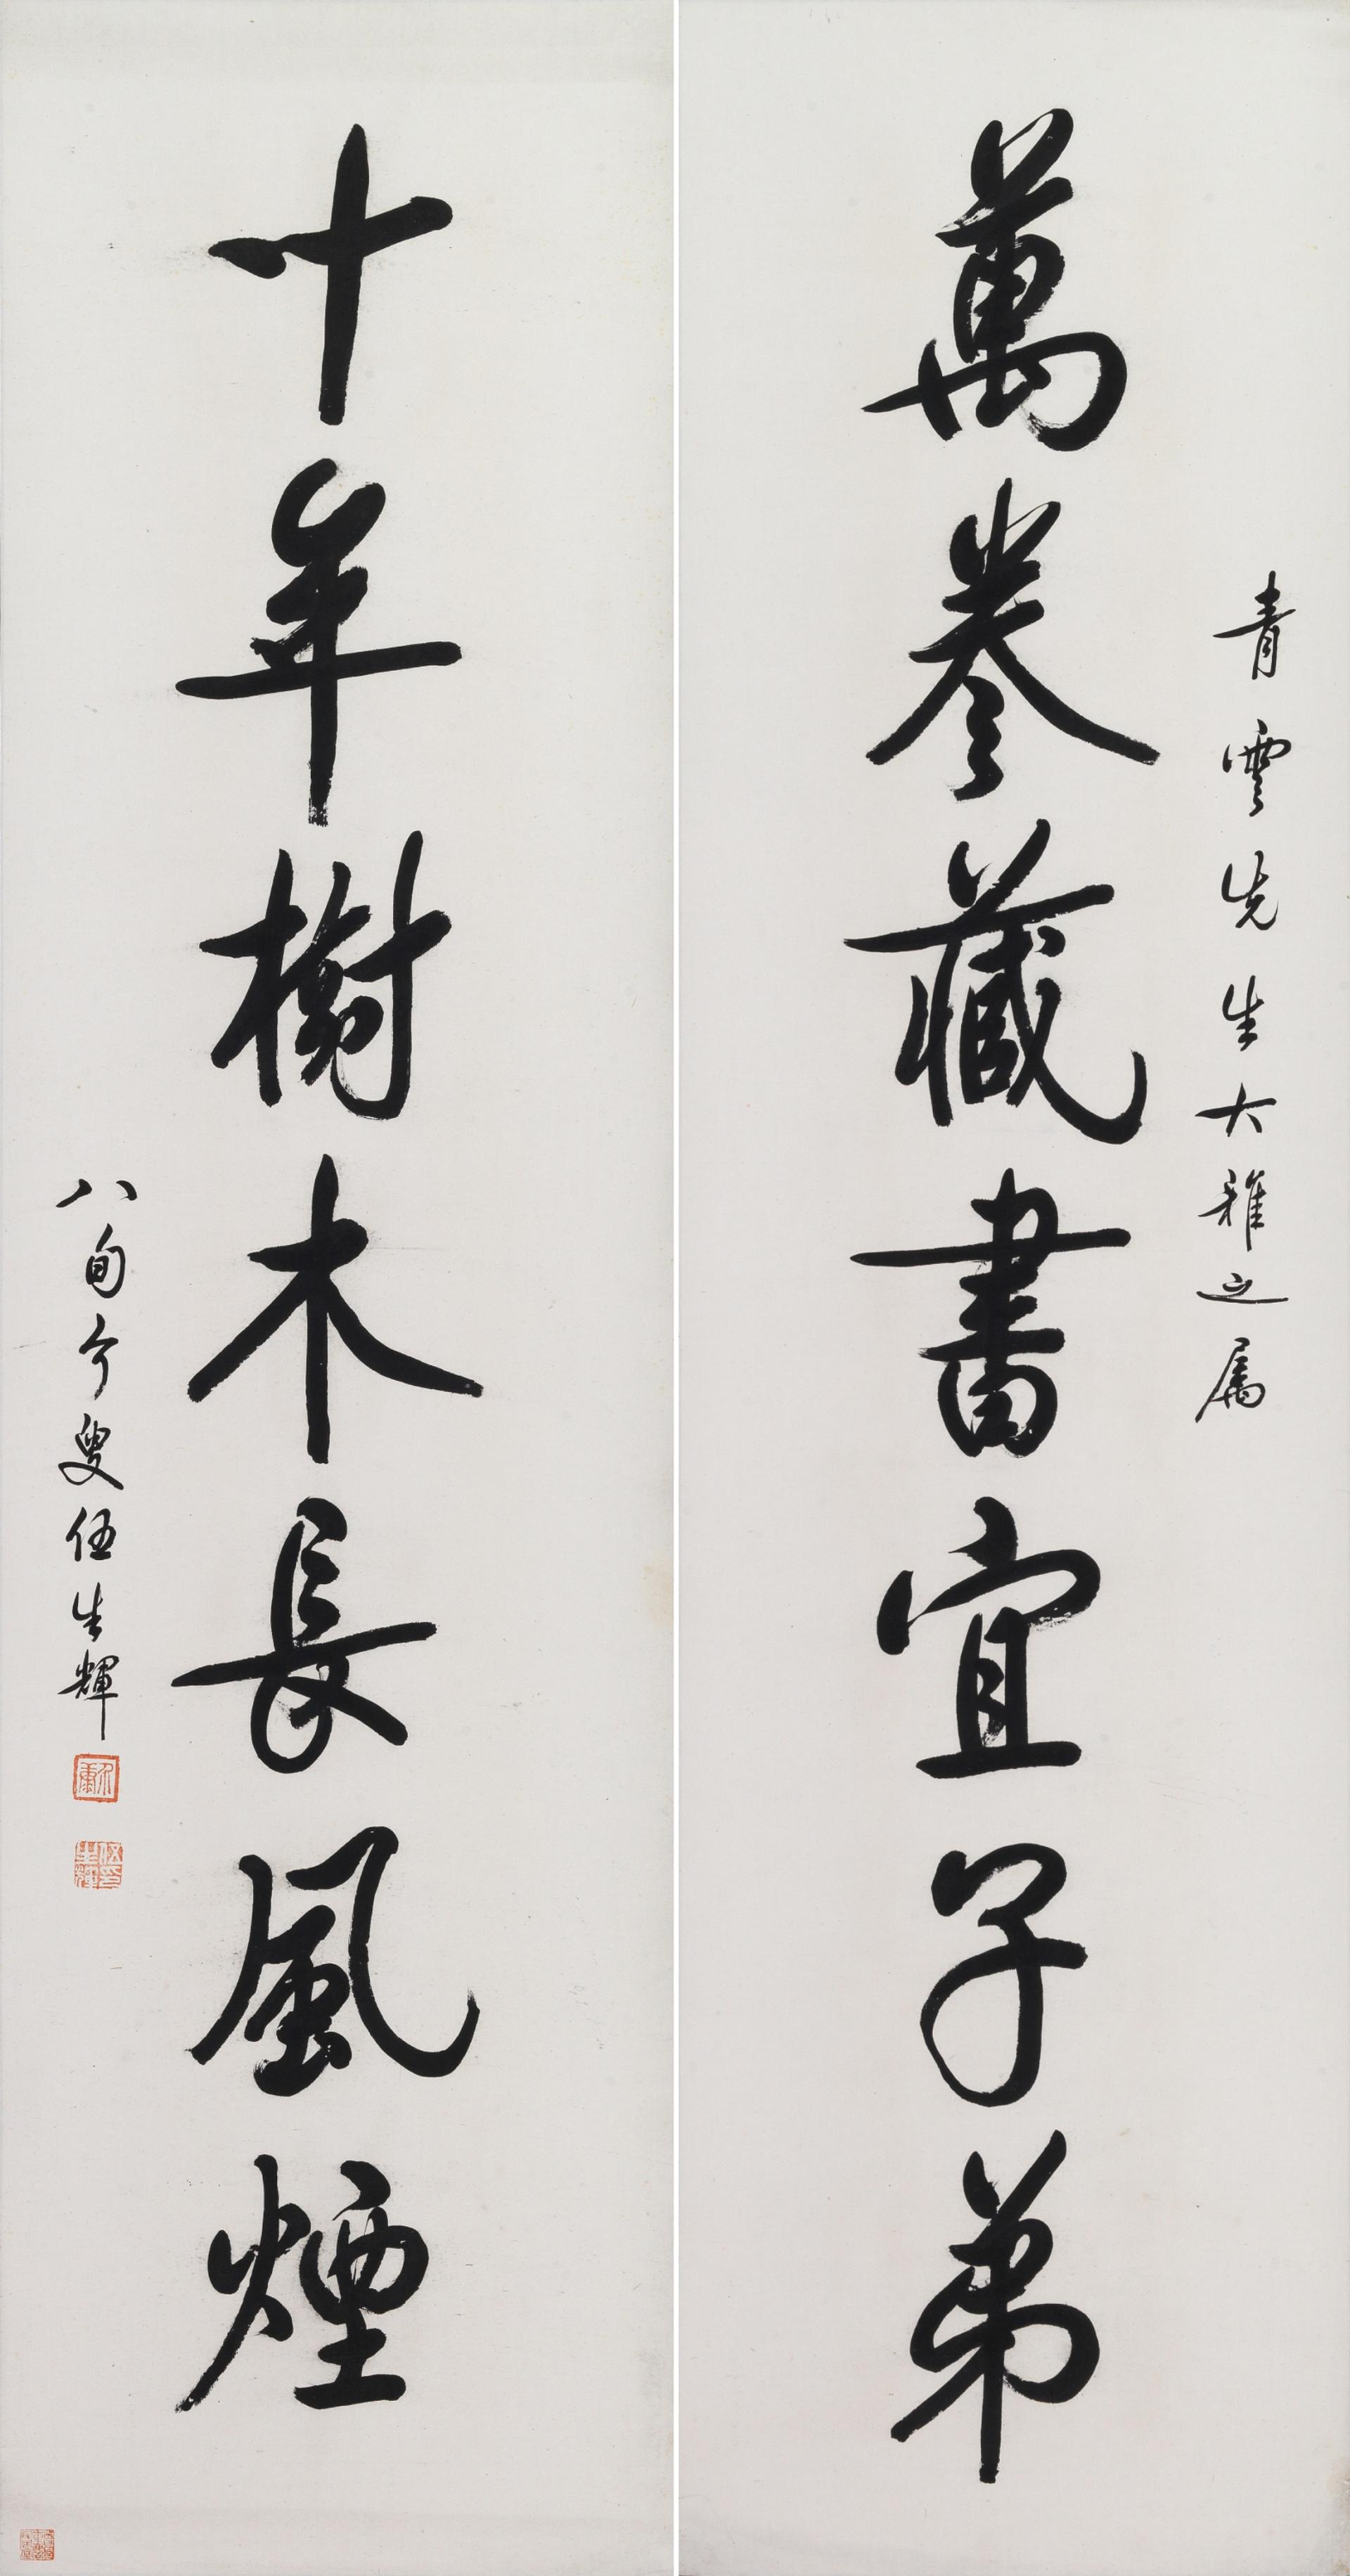 青雲先生大雅之屬
萬卷藏書宜子弟
十年樹木長風煙
八旬介叟伍生輝